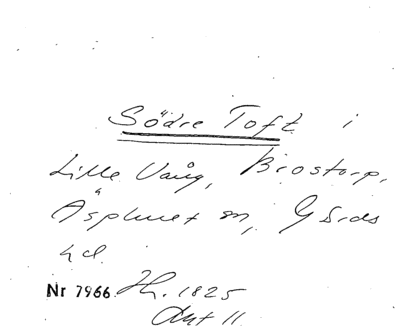 Södre Toft i
Lille Vång, Brostorp,
Äsphult sn, Gärds
hd.
Nr 7966 H. 1825
Akt 11